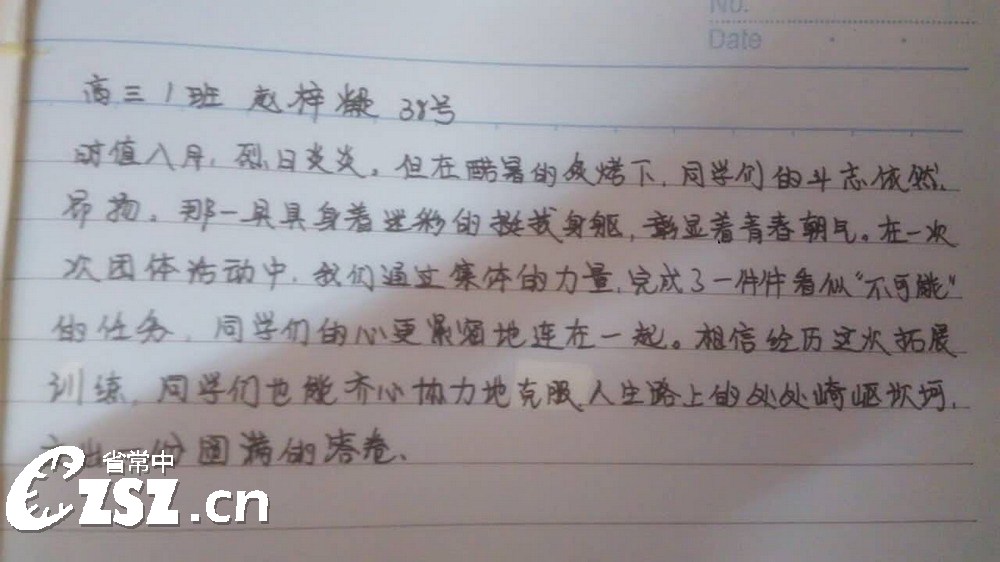 No.
Date
高三1班 赵梓凝 38号
时值八月,烈日炎炎。但在酷暑的炙烤下,同学们的斗志依然
昂扬。那一具具身着迷彩的挺拔身躯,彰显着青春朝气。在一次
次团体活动中,我们通过集体的力量,完成了一件件看似“不可能”
的任务,同学们的心更紧密地连在一起。相信经历这次拓展
训练,同学们也能齐心协力地克服人生路上的处处崎岖坎坷,
交出一份圆满的答卷。
省常中
CZSZ.cn